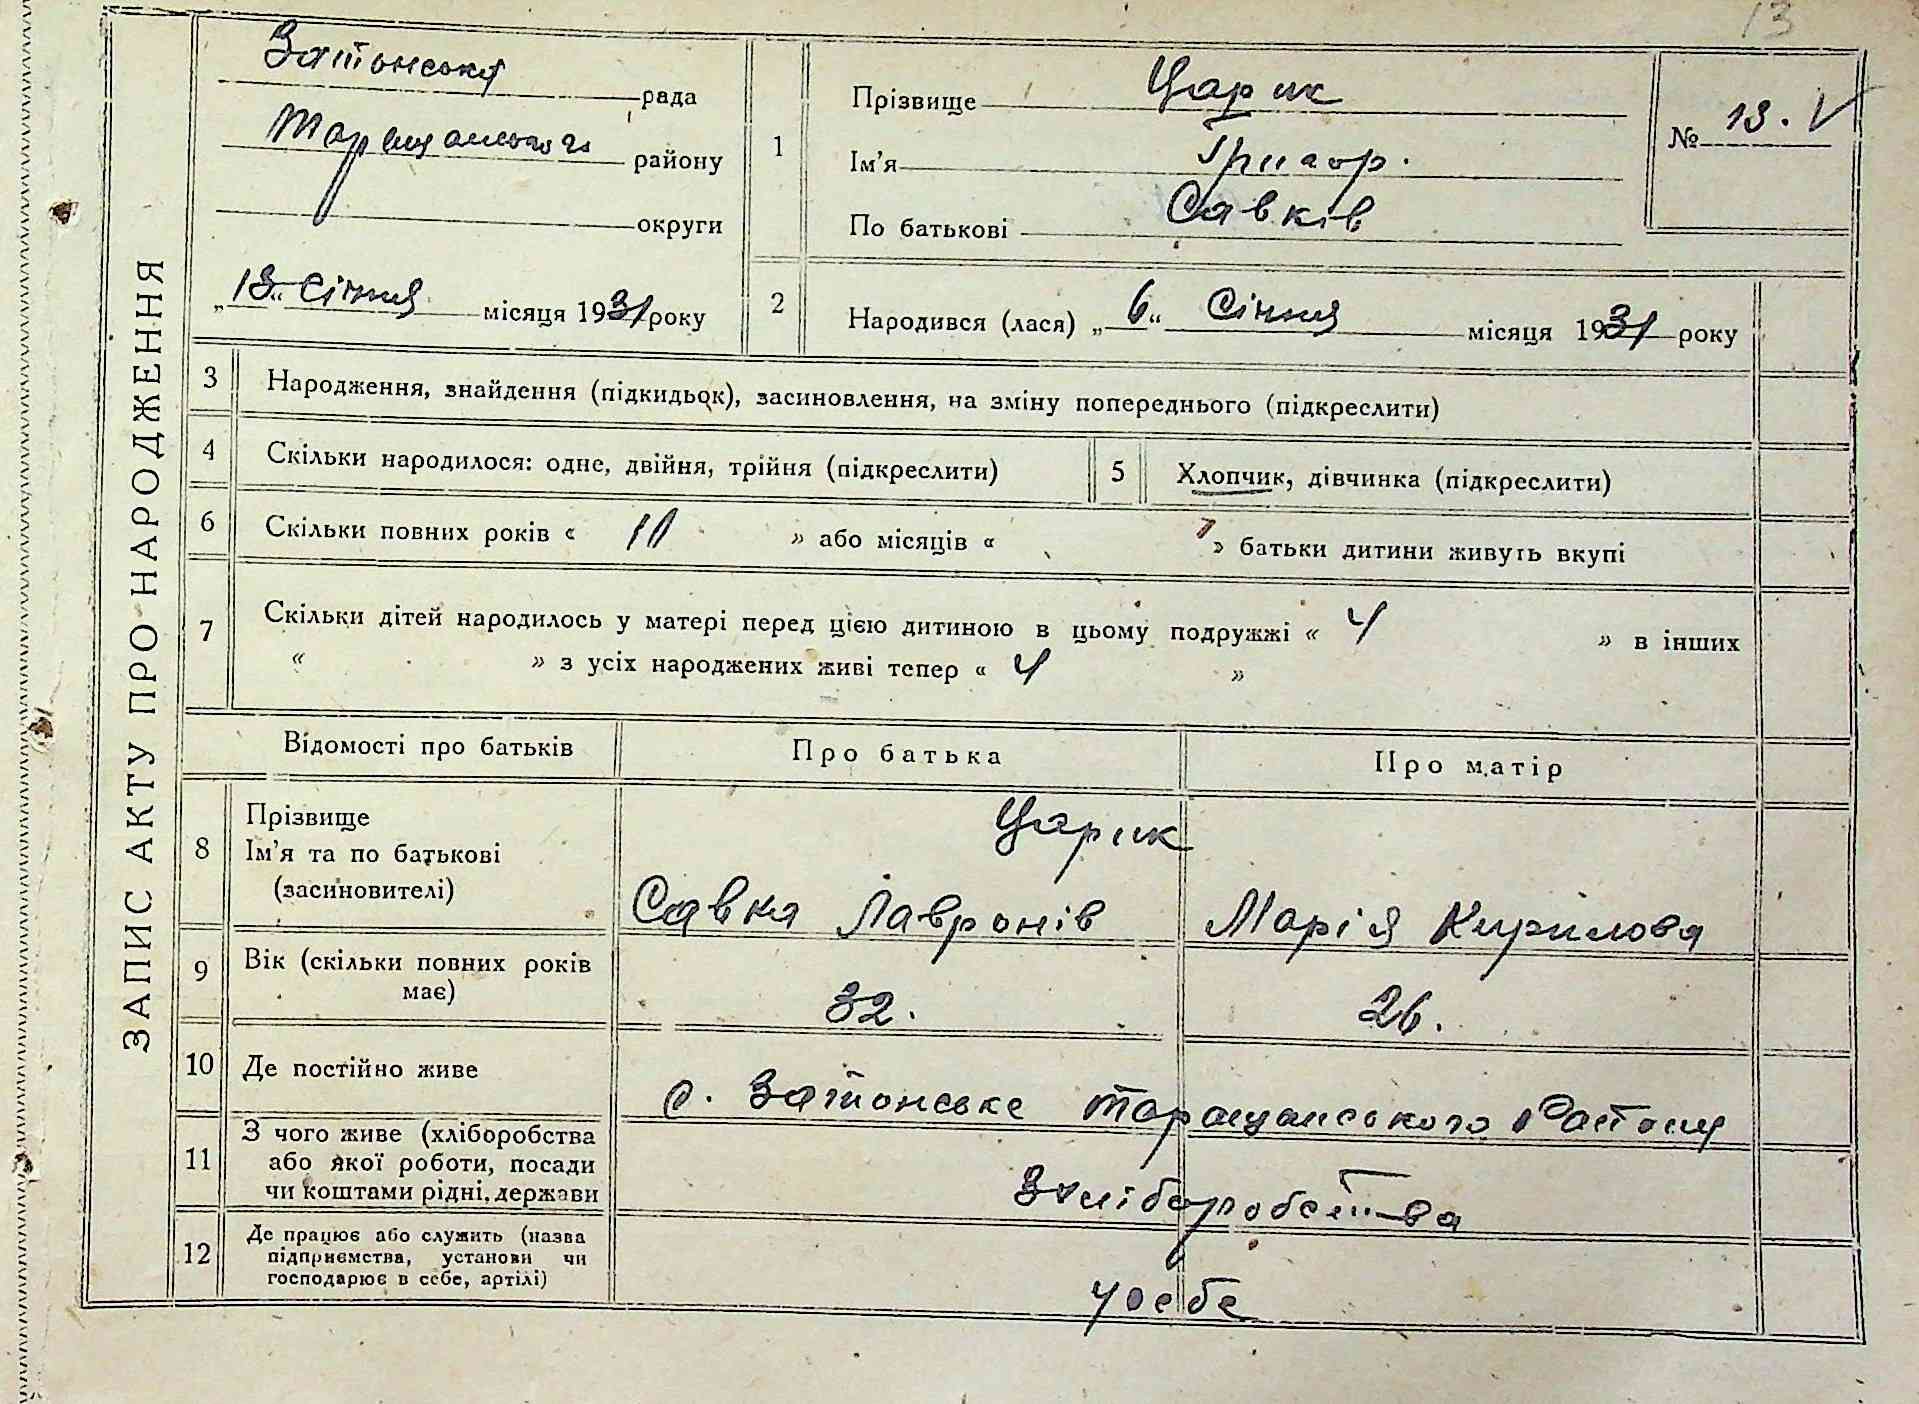 13
ЗАПИС АКТУ ПРО НАРОДЖЕННЯ
Затонська рада
Таращанського району
округи
„13“ Січня місяця 1931 року
1
Прізвище Царик
Ім’я Григор.
По батькові Савків
№ 13. V
2
Народився (лася) „6“ Січня місяця 1931 року
3 Народження, знайдення (підкидьок), засиновлення, на зміну попереднього (підкреслити)
4 Скільки народилося: одне, двійня, трійня (підкреслити)
5 Хлопчик, дівчинка (підкреслити)
6 Скільки повних років « 10 » або місяців « » батьки дитини живуть вкупі
7 Скільки дітей народилось у матері перед цією дитиною в цьому подружжі « 4 » в інших
« » з усіх народжених живі тепер « 4 »
Відомості про батьків Про батька Про матір
8
Прізвище
Ім’я та по батькові
(засиновителі)
Царик
Савка Лавронів Марія Кирилова
9
Вік (скільки повних років
має)
32. 26.
10 Де постійно живе
с. Затонське Таращанського Району
11
З чого живе (хліборобства
або якої роботи, посади
чи коштами рідні, держави
Зхліборобства
12
Де працює або служить (назва
підприємства, установи чи
господарює в себе, артілі)
усебе